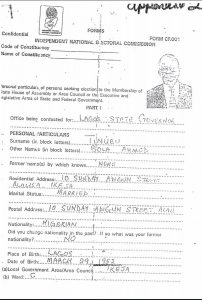 Appendix 2
FORMS
Confidential
FORM CF.001
INDEPENDENT NATIONAL ELECTORAL COMMISSION
Code of Constituency
Name of Constituency
Personal particulars, of persons seeking election to the Membership of
State House of Assembly or Area Council or the Executive and
Legislative Area of State and Federal Government.
PART I
Office being contested for: LAGOS STATE GOVERNOR
PERSONAL PARTICULARS
Surname (in block letters) TINUBU
Other Names (in block letters) BOLA AHMED
Former name(s) by which known: NONE
Residential Address: 10 SUNDAY STREET
ALAUSA IKEJA
Marital Status: MARRIED
Postal Address: 10 SUNDAY STREET
Nationality: NIGERIAN
Did you change nationality in the past? If so what was your former
nationality? NO
Place of Birth: LAGOS
Date of Birth: MARCH 29, 1952
(a) Local Government Area/Area Council IKEJA
(b) Ward: